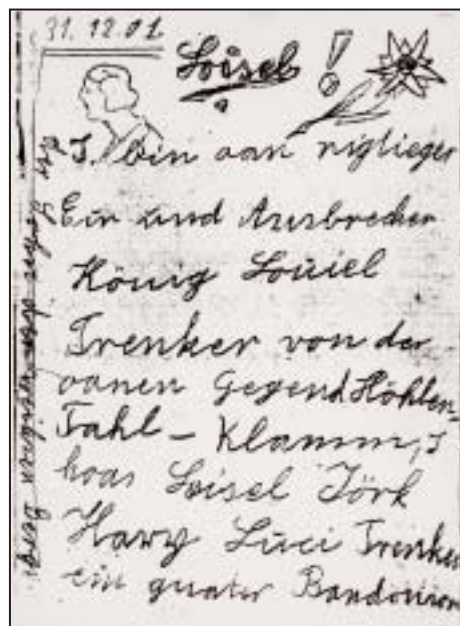 31. 12. 01
Loisel !
I. bin aan riglieger
Ein und Ausbrecher
König Louiel
Trenker von der
oanen Gegend Höhlen-
Tahl – Klamm, I
hoas Loisel Jörk
Hary Luci Trenker
ein guater Bandonion